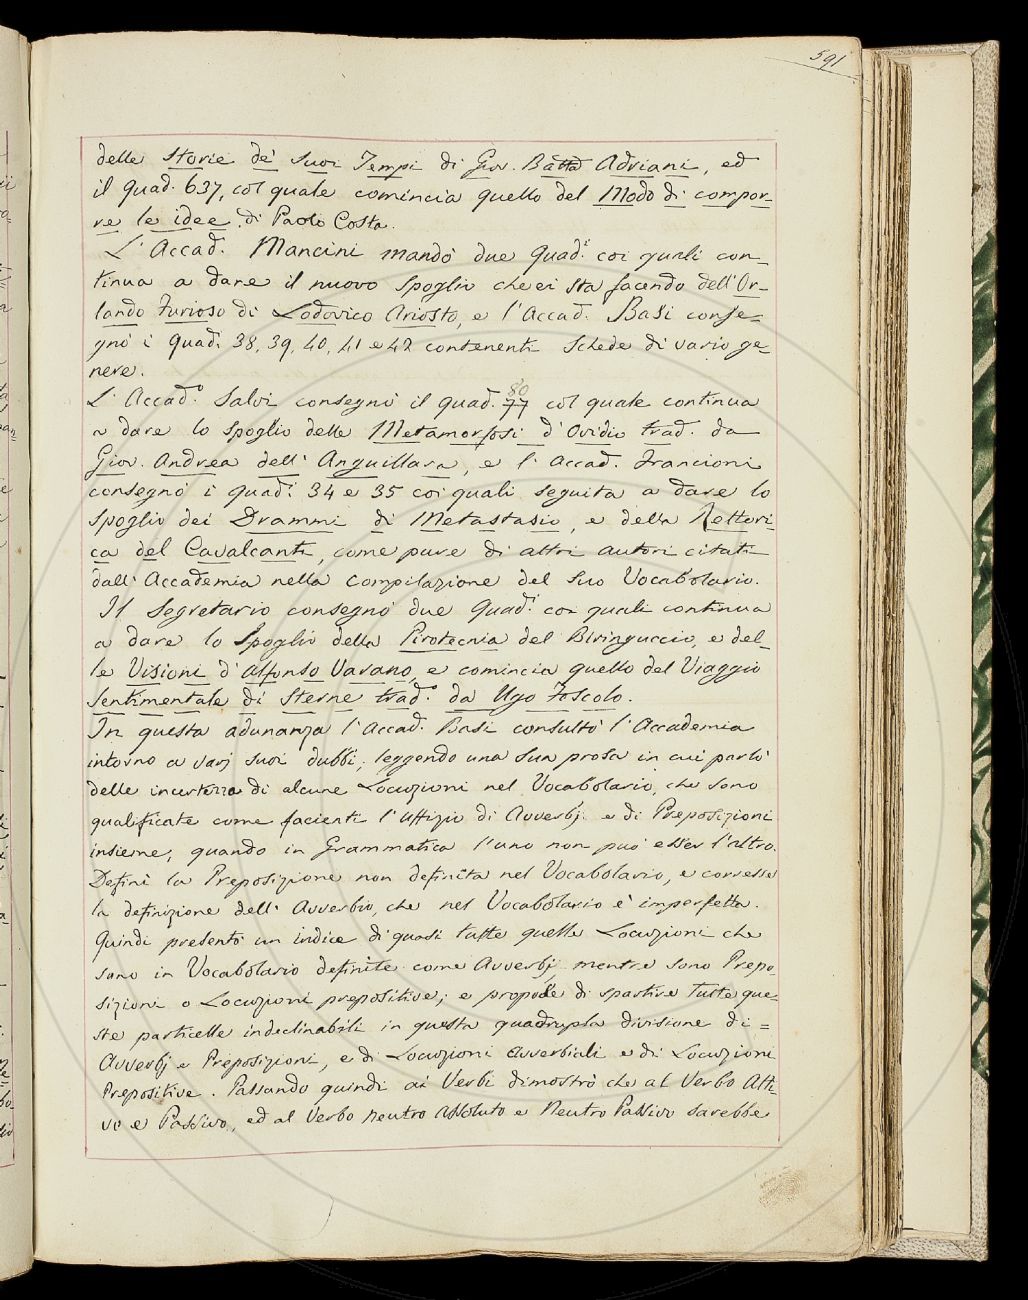 591
delle Storie de' suoi Tempi di Gio. Batta Adriani, ed
il Quad. 637, col quale comincia quello del Modo di compor-
re le idee di Paolo Costa.
L'Accad. Mancini mandò due Quad.i coi quali con-
tinua a dare il nuovo Spoglio che ei sta facendo dell'Or-
lando Furioso di Lodovico Ariosto, e l'Accad. Basi conse-
gnò i Quad. 38, 39, 40, 41 e 42 contenenti Schede di vario ge-
nere.
L'Accad.o Salvi consegnò il Quad. 77 80 col quale continua
a dare lo Spoglio delle Metamorfosi d'Ovidio trad. da
Giov. Andrea dell'Anguillara, e l'Accad. Francioni
consegnò i Quad.i 34 e 35 coi quali seguita a dare lo
Spoglio dei Drammi di Metastasio, e della Rettori-
ca del Cavalcanti, come pure di altri autori citati
dall'Accademia nella compilazione del suo Vocabolario.
Il Segretario consegnò due Quad.i coi quali continua
a dare lo Spoglio della Pirotecnia del Biringuccio, e del-
le Visioni d'Alfonso Varano, e comincia quello del Viaggio
sentimentale di Sterne trad.o da Ugo Foscolo.
In questa adunanza l'Accad. Basi consultò l'Accademia
intorno a varj suoi dubbi, leggendo una sua prosa in cui parlò
delle incertezza di alcune Locuzioni nel Vocabolario, che sono
qualificate come facienti l'uffizio di Avverbj e di Preposizioni
insieme, quando in Grammatica l'uno non può esser l'altro.
Definì la Preposizione non definita nel Vocabolario, e corresse
la definizione dell'Avverbio, che nel Vocabolario è imperfetta.
Quindi presentò un indice di quasi tutte quelle Locuzioni che
sono in Vocabolario definite come Avverbj mentre sono Prepo
sizioni o Locuzioni prepositive; e propose di spartire tutte que-
ste particelle indeclinabili in questa quadrupla divisione di =
Avverbj e Preposizioni, e di Locuzioni avverbiali e di Locuzioni
Prepositive. Passando quindi ai Verbi dimostrò che al Verbo Atti-
vo e Passivo, ed al Verbo neutro assoluto e Neutro Passivo sarebbe